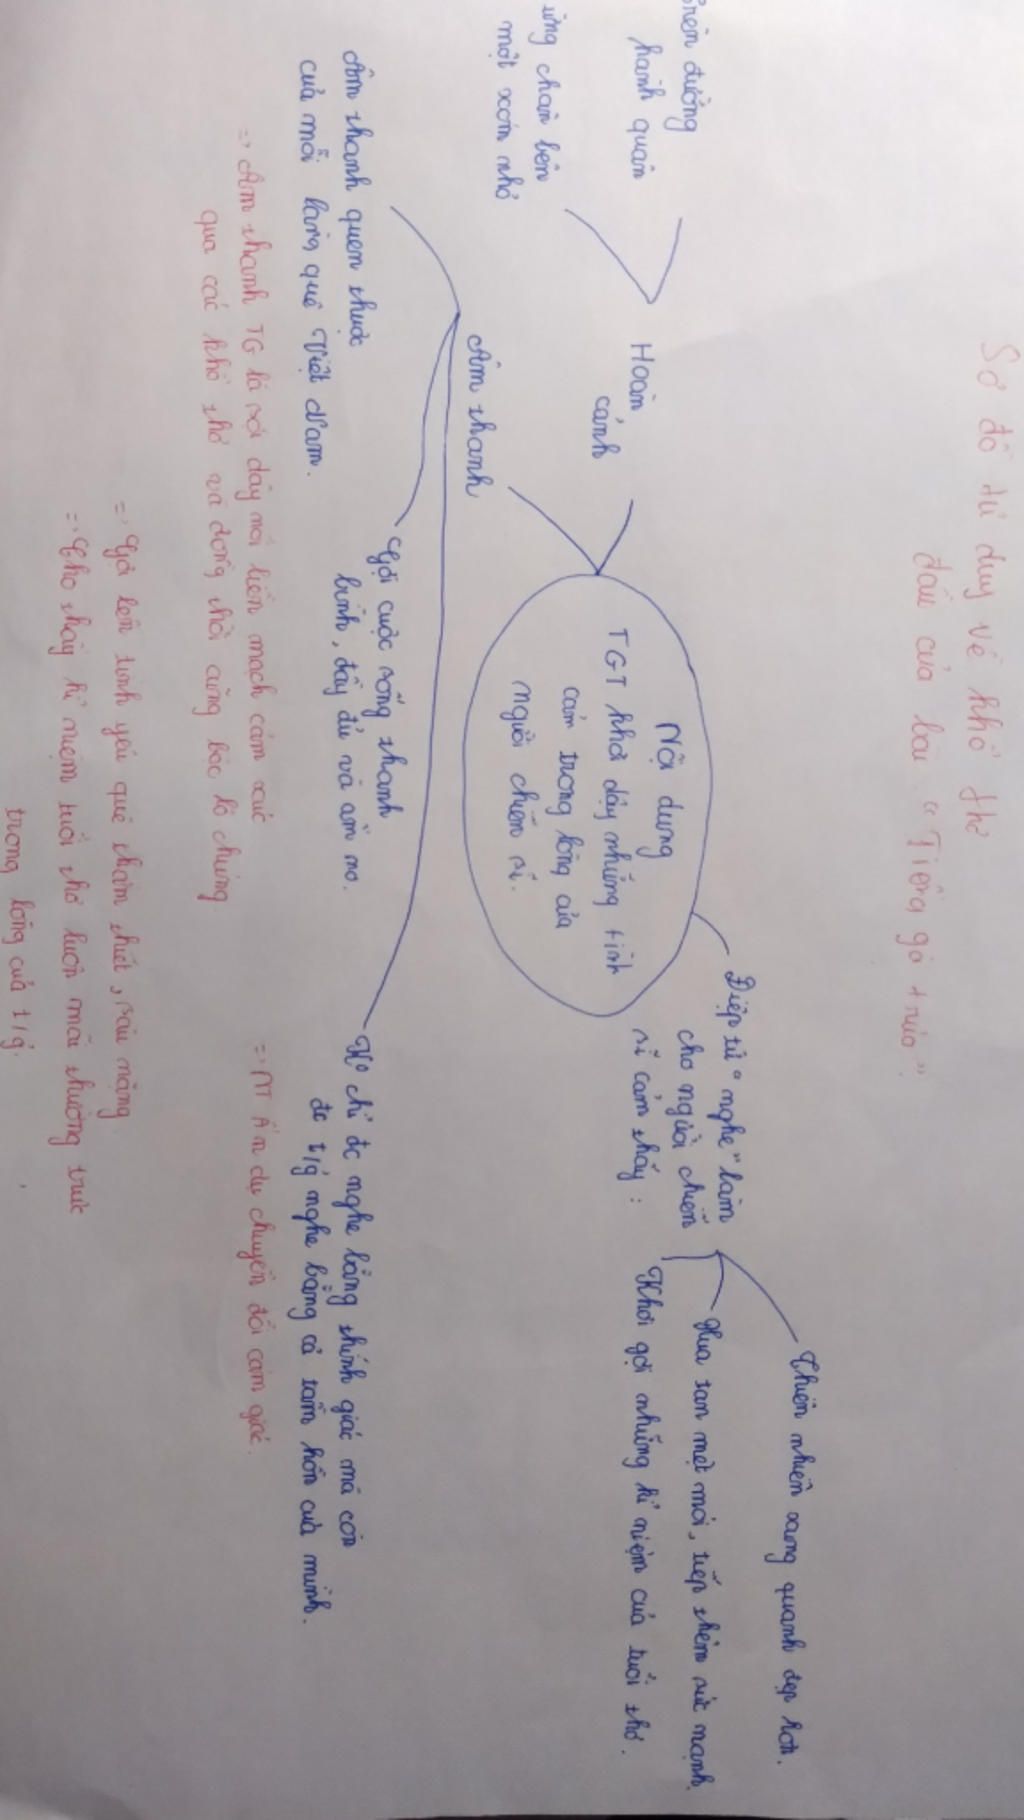 Sơ đồ tư duy về khổ thơ
đầu của bài "Tiếng gà trưa".
trên đường
hành quân
ừng chân bên
một xóm nhỏ
Hoàn
cảnh
Nội dung
TGT khơi dậy những tình
cảm trong lòng của
người chiến sĩ.
Điệp từ "nghe" làm
cho người chiến
sĩ cảm thấy :
Thiên nhiên xung quanh đẹp hơn.
Xua tan mệt mỏi, tiếp thêm sức mạnh
Khơi gợi những kỉ niệm của tuổi thơ.
Âm thanh
Âm thanh quen thuộc
của mỗi làng quê Việt Nam.
Gợi cuộc sống thanh
bình, đầy đủ và ấm no.
Ko chỉ đc nghe bằng thính giác mà còn
đc t/g nghe bằng cả tâm hồn của mình.
=> Âm thanh TG là sợi dây nối liền mạch cảm xúc
qua các khổ thơ và đồng thời cũng bộc lộ chúng.
=> NT Ẩn dụ chuyển đổi cảm giác.
=> Gợi lên tình yêu quê thắm thiết, sâu nặng
=> Cho thấy kỉ niệm tuổi thơ luôn mãi thường trực
trong lòng của t/g.